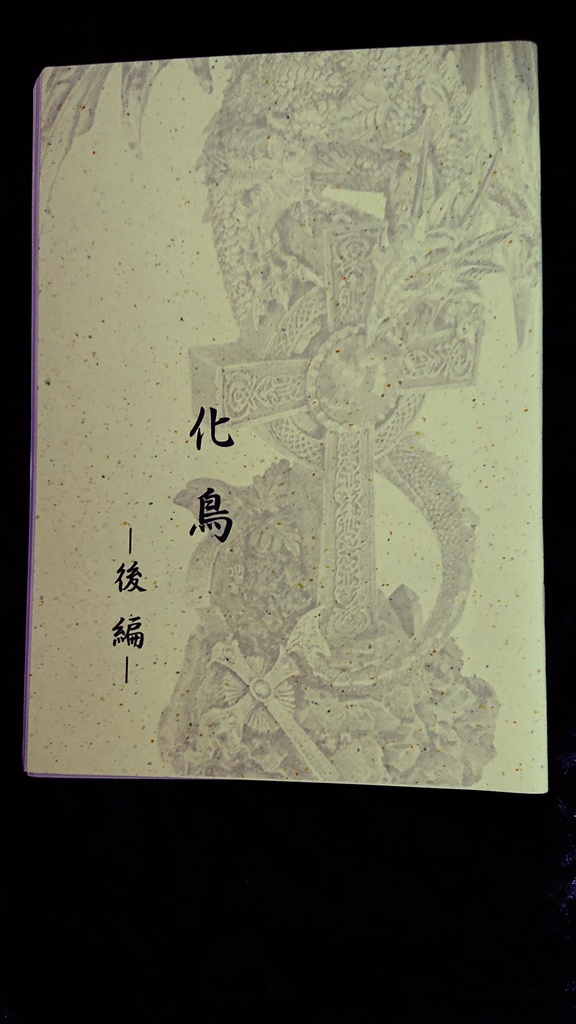 化鳥
―後編―